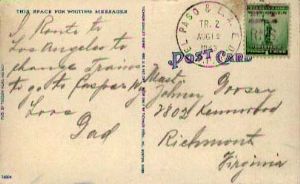 THIS SPACE FOR WRITING MESSAGES
I Route to
Los Angeles to
change Trains
to go to Casper Wy
Love
Dad
EL PASO & L.A.
TR. 2
AUG 12
POST CARD
Mast. Johnny
2802 Kenwood
Richmond
Virginia